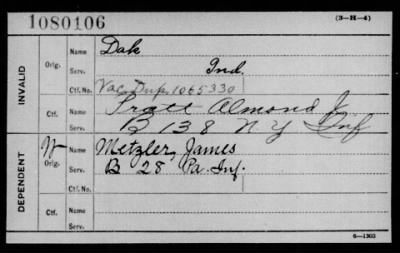 1080106
(3-H-4)
INVALID
Orig.
Name Dak
Serv. Ind.
Ctf. No. Vac. Dup. 1065330
Ctf.
Name Pratt Almond J
Serv. B 138 N Y Inf
DEPENDENT
W
Orig.
Name Metzler, James
Serv. B 28 Pa. Inf.
Ctf. No.
Ctf.
Name
Serv.
6-1303